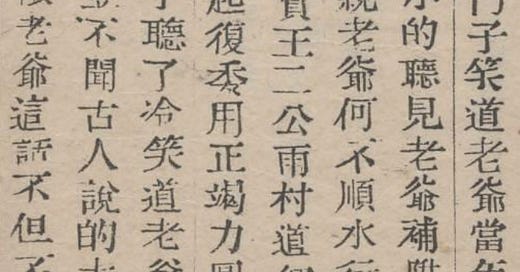 門子笑道老爺當年
小的聽見老爺補陞
親老爺何不順水行
賈王二公雨村道你
起復委用正竭力圖
子聽了冷笑道老爺
不聞古人說的大
老爺這話不但不